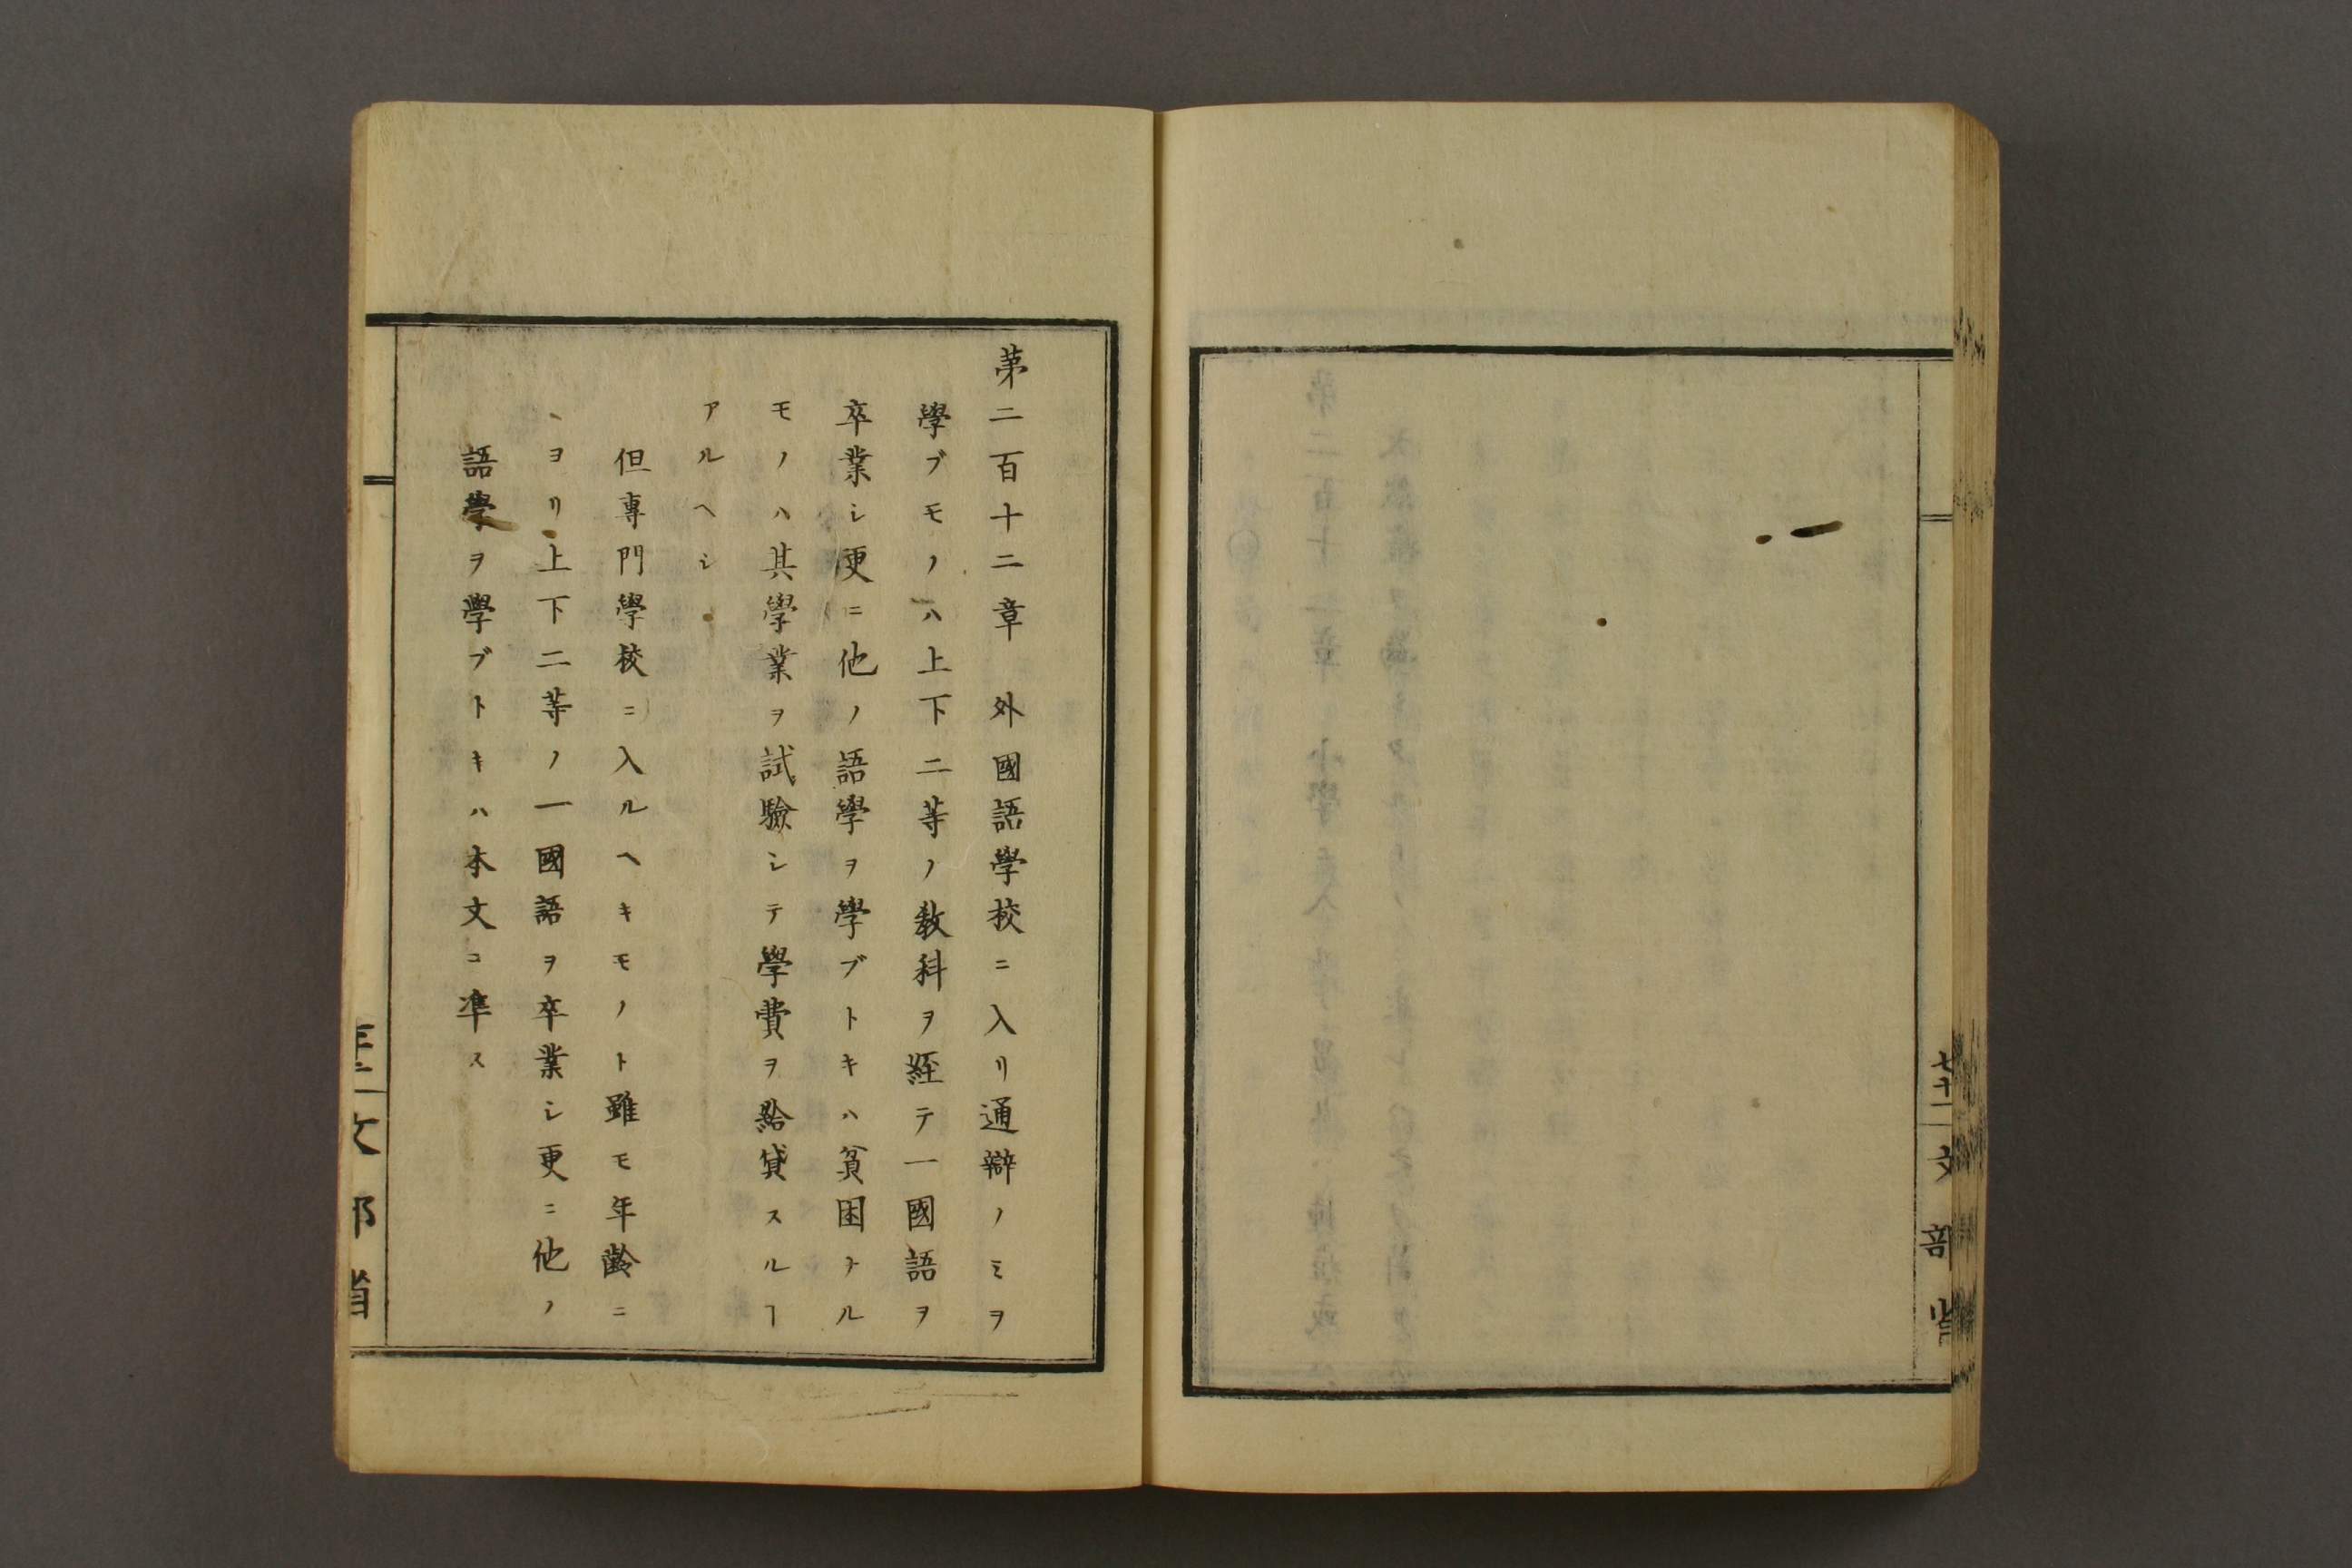 第二百十二章　外國語學校ニ入リ通辯ノミヲ
學ブモノハ上下二等ノ敎科ヲ經テ一國語ヲ
卒業シ更ニ他ノ語學ヲ學ブトキハ貧困ナル
モノハ其學業ヲ試驗シテ學費ヲ給貸スルヿ
アルヘシ
但專門學校ニ入ルヘキモノト雖モ年齡ニ
ヽヨリ上下二等ノ一國語ヲ卒業シ更ニ他ノ
語學ヲ學ブトキハ本文ニ準ス
文部省
文部省